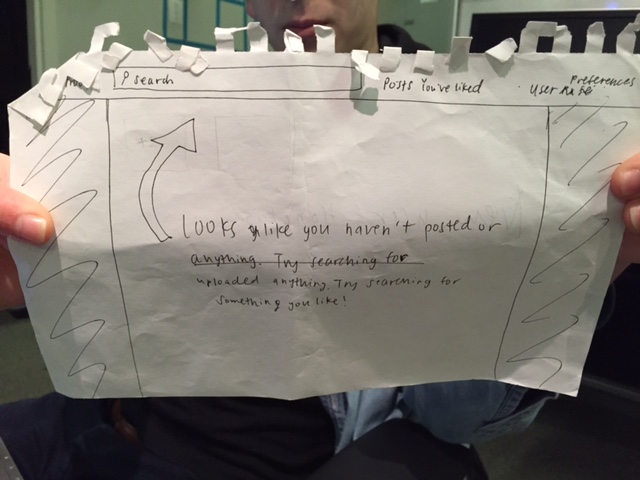 search
Posts You've liked
Preferences
User
Looks like you haven't posted or
anything. Try searching for
uploaded anything. Try searching for
something you like!